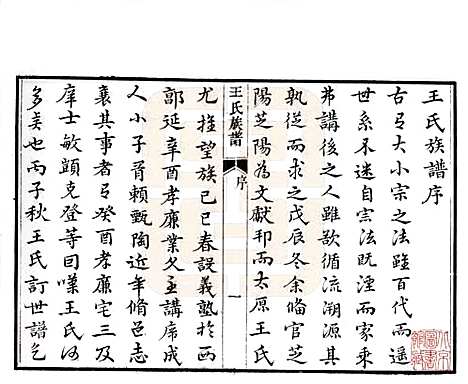 王氏族譜序
古有大小宗之法雖百代而遥
世系不迷自宗法既湮而家乘
弗講後之人雖欲循流溯源其
孰從而求之戊辰冬余備官芝
陽芝陽為文獻邦而太原王氏
王氏族譜
序
一
尤推望族己巳春設義塾於西
郭延辛酉孝廉業久主講席成
人小子胥賴甄陶近年脩邑志
襄其事者有癸酉孝廉宅三及
庠士敏顕克登等回嘆王氏何
多美也丙子秋王氏訂世譜乞